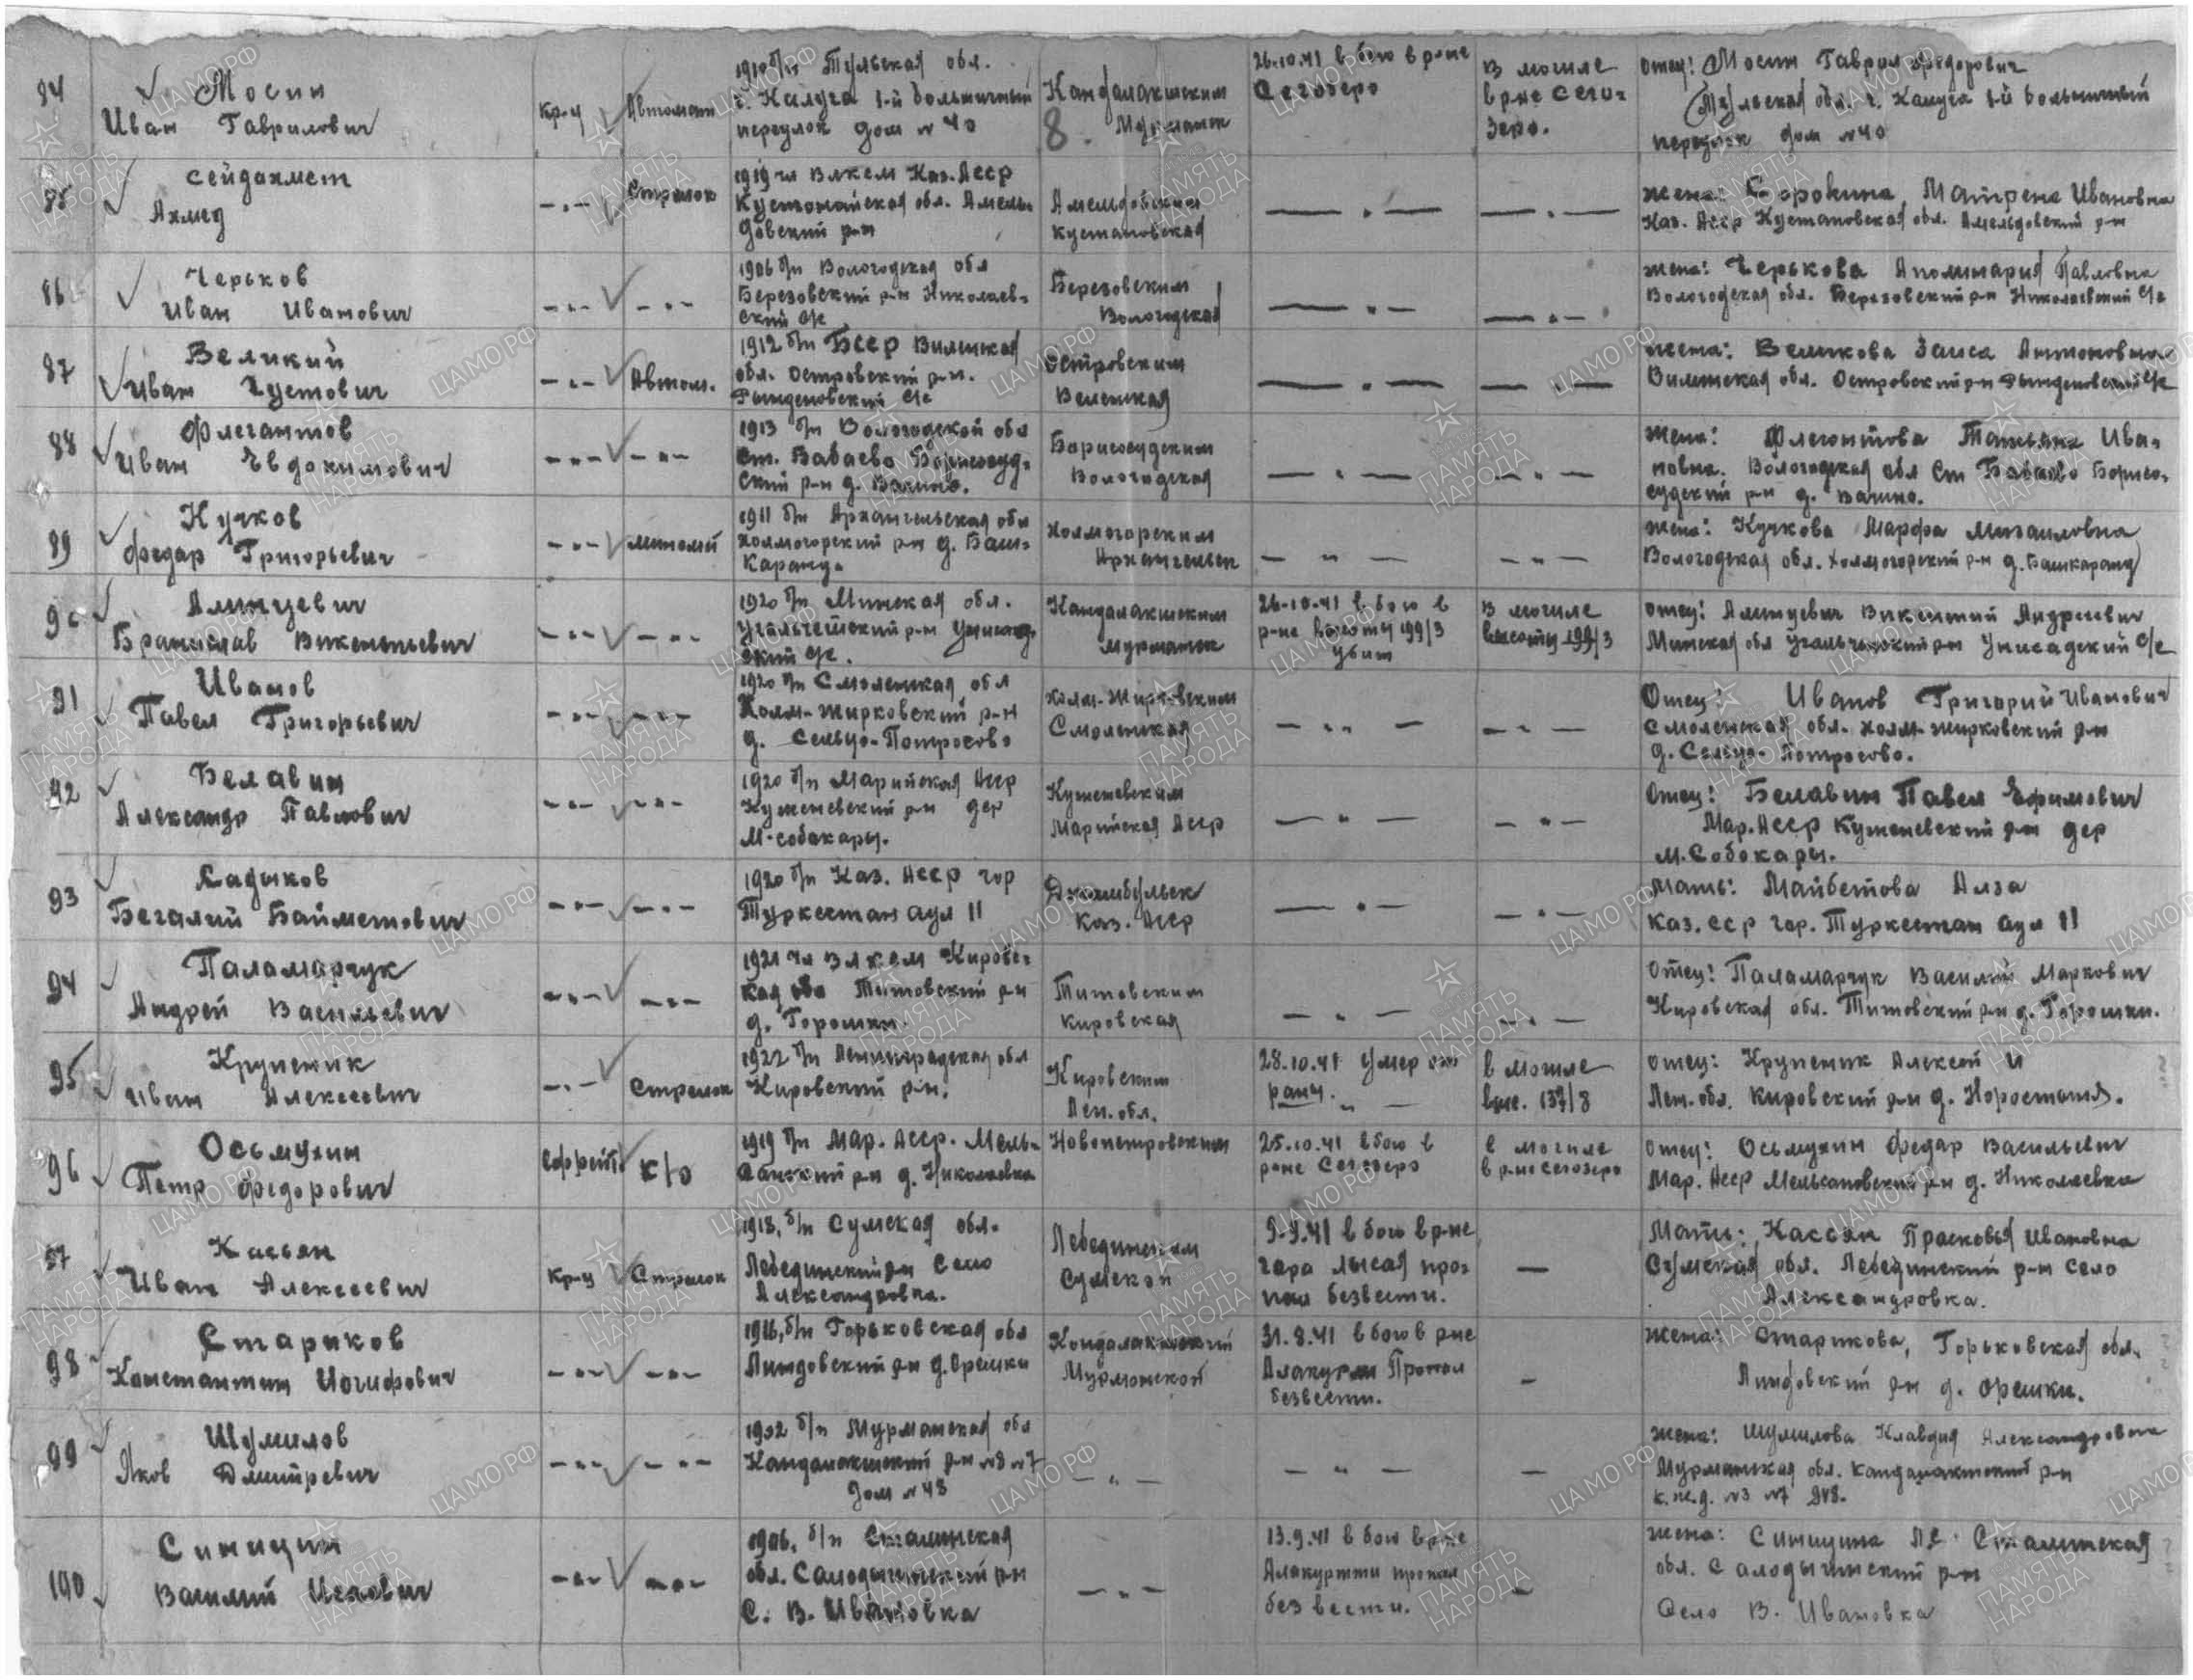 84
Мосин
Иван Гаврилович
кр-ц
Автомат
1910 б/п Тульская обл.
г. Калуга 1-й больничный
переулок дом № 40
Кандалакшским
8. Мурманск
26.10.41 в бою в р-не
Сегозеро
В могиле
в р-не Сего-
зеро.
Отец: Мосин Гаврил Федорович
Тульская обл. г. Калуга 1-й больничный
переулок дом №40
85
Сейдахмет
Ахмед
Стрелок
1919 чл ВЛКСМ Каз. Асср
Кустонайская обл. Амель-
довский р-н
Амельдовским
Кустановская
жена: Сорокина Матрена Ивановна
Каз. Асср Кустановская обл. Амельдовский р-н
86
Черьков
Иван Иванович
1906 б/п Вологодская обл
Березовский р-н Николаев-
ский с/с
Березовским
Вологодская
жена: Черькова Аполинария Павловна
Вологодская обл. Березовский р-н Николаевский с/с
87
Великий
Иван Густович
Автом.
1912 б/п Бсср Вилейская
обл. Островский р-н.
с/с
Островским
жена: Великова Антоновна
обл. Островский р-н с/с
88
Флегантов
Иван Евдокимович
1913 б/п Вологодской обл
Ст. Бабаево Борисосуд-
ский р-н д. Вагино.
Борисосудским
Вологодская
Жена: Флегонтова Татьяна Ива-
новна. Вологодская обл Ст Бабаево Борисо-
судский р-н д. Вагино.
89
Кучков
Федар Григорьевич
1911 б/п Архангельская обл
Холмогорский р-н д. Баш-
Каранд.
Холмогорским
Архангельск
Жена: Кучкова Марфа Михаиловна
Вологодская обл. Холмогорский р-н д. Башкаранд
90
Алинцевич
Бранислав Викентьевич
1920 б/п Минская обл.
р-н
ский с/с.
Кандалакшским
Мурманск
26-10-41 в бою в
р-не высоты 199/3
убит
В могиле
высоты 199/3
отец: Алинцевич Викентий Андреевич
Минская обл р-н с/с
91
Иванов
Павел Григорьевич
1920 б/п Смоленская обл
Холм-Жирковский р-н
д. Сельцо-Потросово
Холм-Жирковским
Смоленская
Отец: Иванов Григорий Иванович
Смоленская обл. Холм-Жирковский р-н
д. Сельцо-Потросово.
92
Белавин
Александр Павлович
1920 б/п Марийская Асср
Куженевский р-н дер
М-собакары.
Куженевским
Марийская Асср
Отец: Белавин Павел Ефимович
Мар. Асср Куженевский р-н дер
М. Собокары.
93
Садыков
Бегалий Байметович
1920 б/п Каз. Асср гор
Туркестан аул 11
Джамбульск
Каз. Асср
мать: Майбетова Алза
Каз. сср гор. Туркестан аул 11
94
Паламарчук
Андрей Васильевич
1921 чл влксм Кировс-
кая обл Титовский р-н
д. Горошки.
Титовским
Кировская
Отец: Паламарчук Василий Маркович
Кировская обл. Титовский р-н д. Горошки.
95
Крупеник
Иван Алексеевич
Стрелок
1922 б/п Ленинградская обл
Кировский р-н.
Кировским
Лен. обл.
28.10.41 Умер от
ран.
в могиле
выс. 137/8
отец: Крупеник Алексей И
Лен. обл. Кировский р-н д.
96
Осьмухин
Петр Федорович
Ефрейт.
К/о
1919 б/п Мар. Асср.
р-н д. Николаевка
Новопетровским
25.10.41 в бою в
р-не Сегозеро
в могиле
в р-не Сегозеро
отец: Осьмухин Федар Васильевич
Мар. Асср р-н д. Николаевка
97
Касьян
Иван Алексеевич
Кр-ц
Стрелок
1918, б/п Сумская обл.
Лебединский р-н Село
Александровка.
Лебединским
Сумской
9-9.41 в бою в р-не
гора Лысая про-
пал безвести.
Мать: Кассян Прасковья Ивановна
Сумская обл. Лебединский р-н село
Александровка.
98
Стариков
Константин Иосифович
1916, б/п Горьковская обл
Линдовский р-н д. Орешки
Кондалакшский
Мурманской
31.8.41 в бою в р-не
Алакурти Пропал
безвести.
жена: Старикова, Горьковская обл.
Линдовский р-н д. Орешки.
99
Шумилов
Яков Дмитревич
1902 б/п Мурманская обл
Кандалакшский р-н №3 №7
дом №48
жена: Шумилова Клавдия Александровна
Мурманская обл. Кандалакшский р-н
к.ж.д. №3 №7
100
Синицин
Василий
1906, б/п Сталинская
обл. р-н
С. В. Ивановка
13.9.41 в бою в р-не
Алакуртти пропал
без вести.
жена: Синицина Сталинская
обл. р-н
Село В. Ивановка
ЦАМО РФ
ПАМЯТЬ
НАРОДА